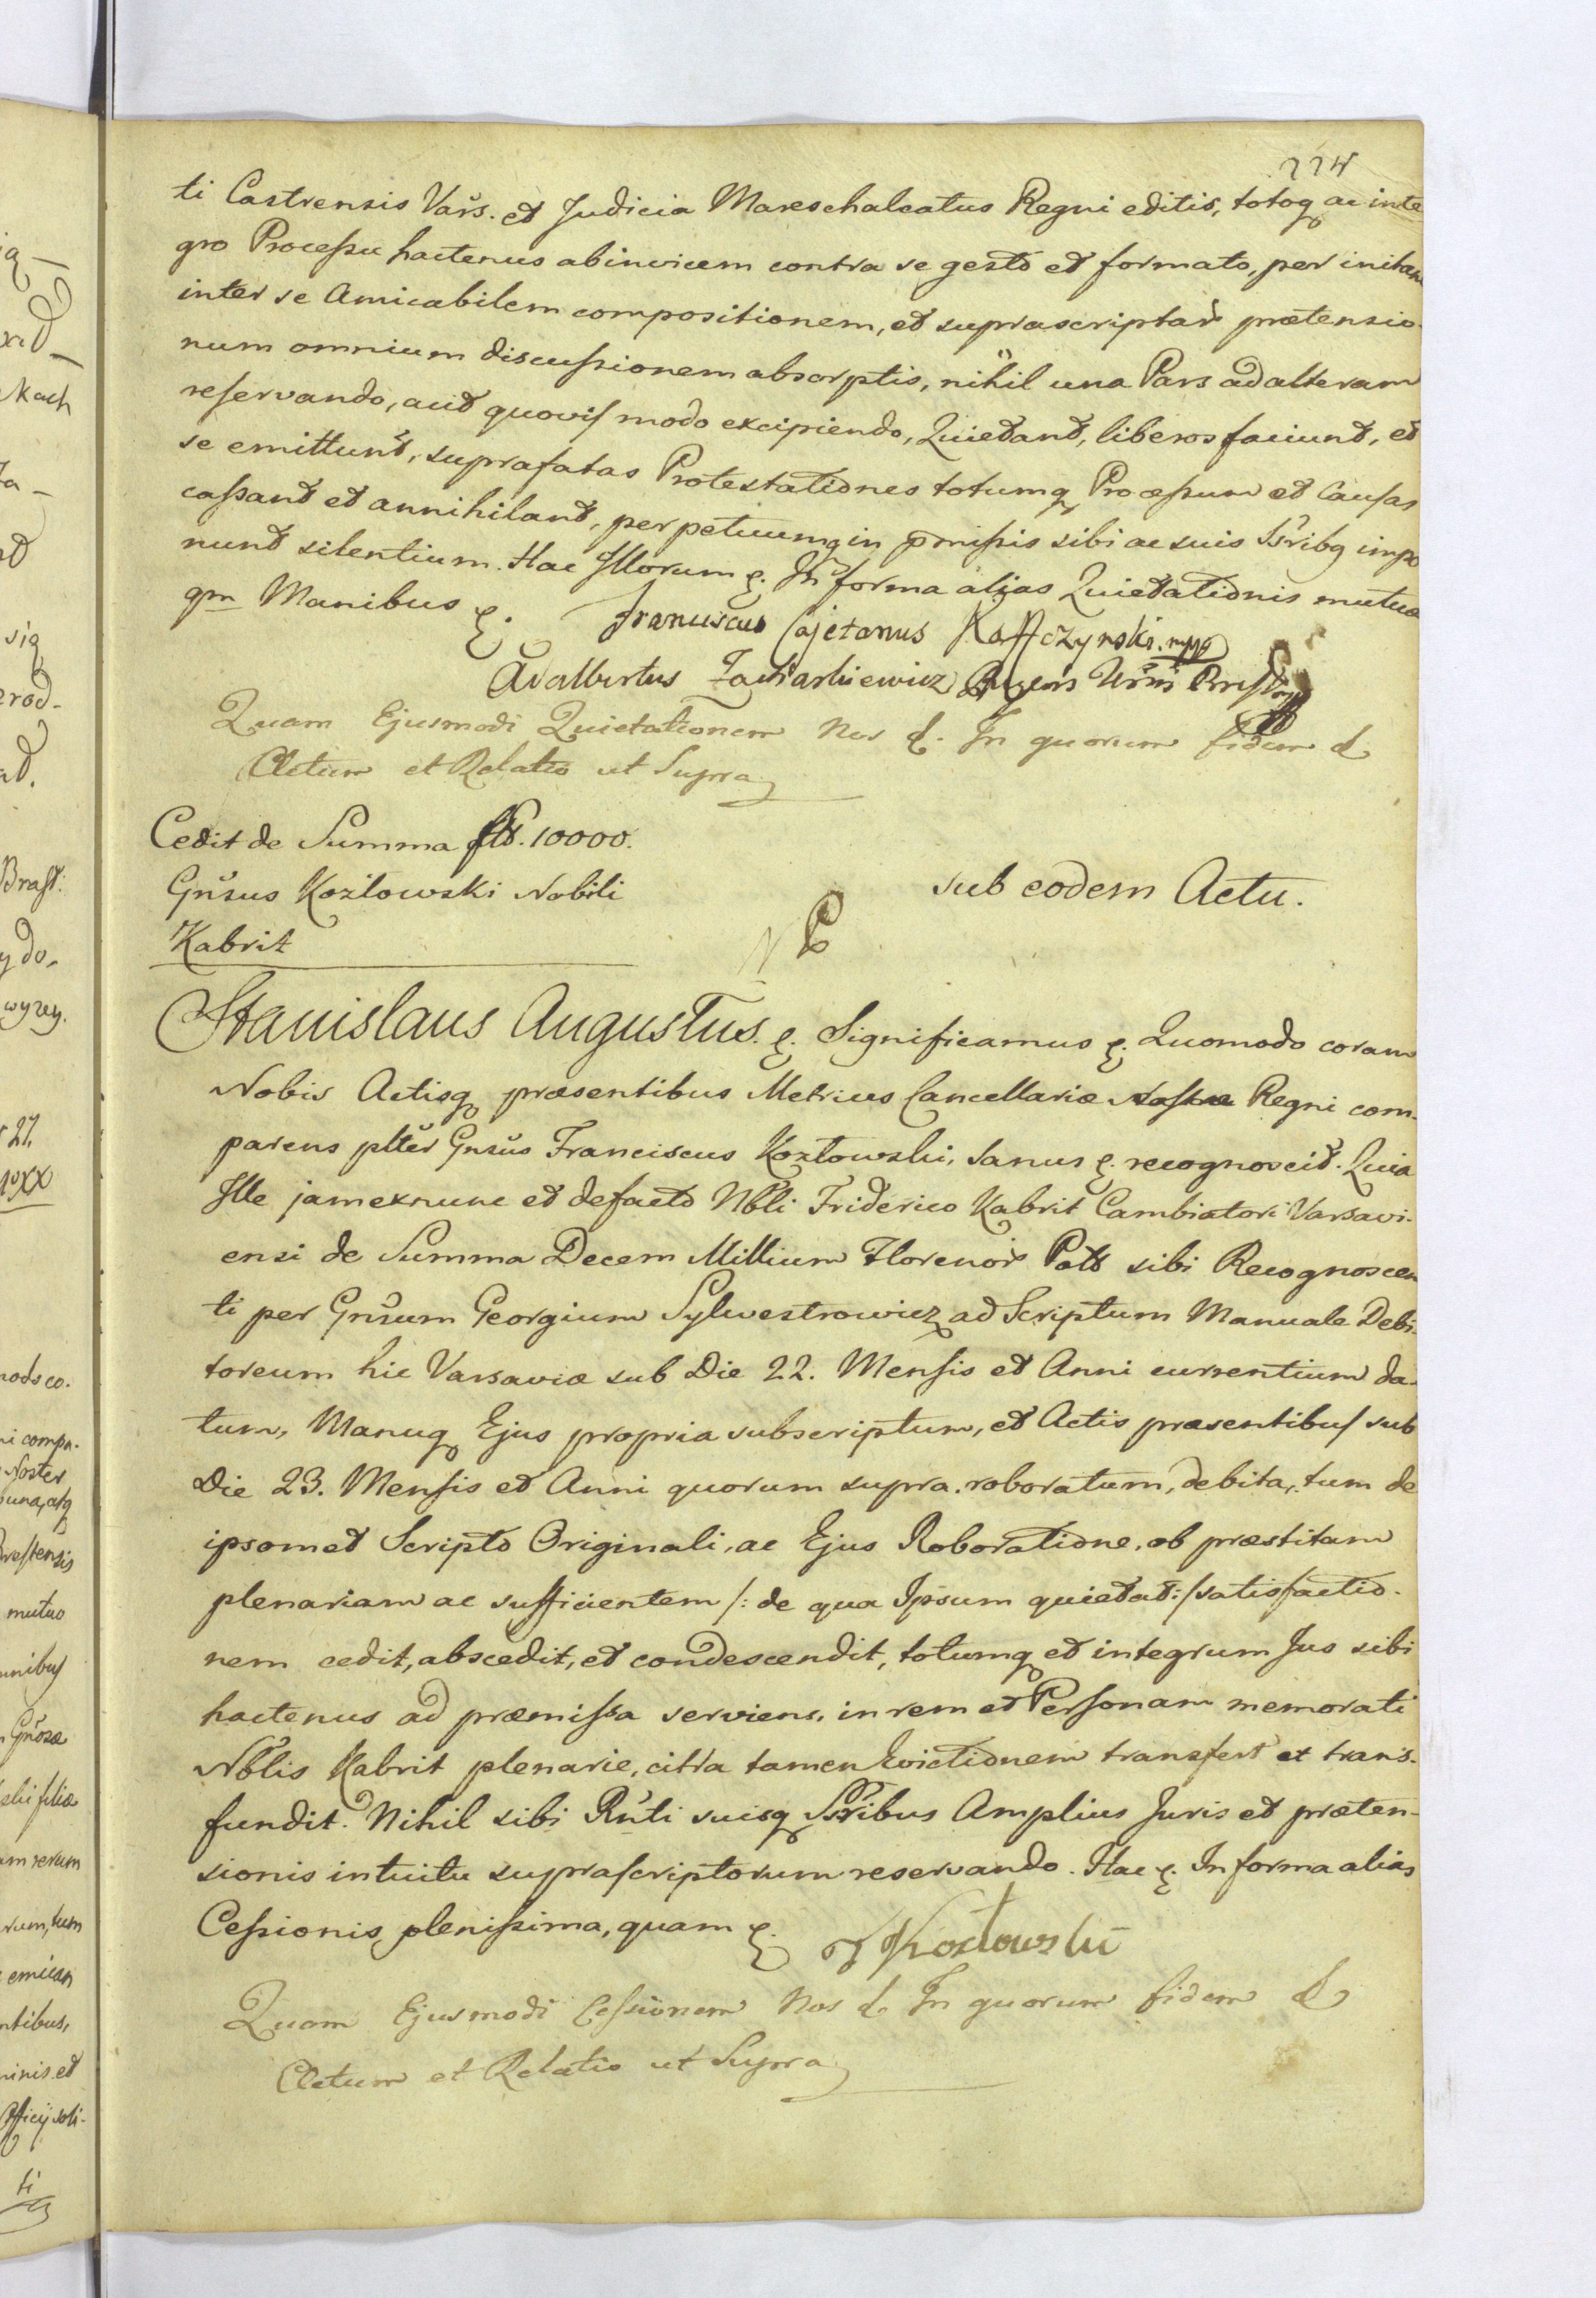 224
ti Castrensis Vars. et Judicia Mareschalcatus Regni editis, totoq ac inte
gro Processu hactenus abinvicem contra se gesto et formato, per initam
inter se Amicabilem compositionem, et suprascriptar prætensio-
num omnium discussionem absorptis, nihil una Pars ad alteram
reservando, aut quovis modo excipiendo, Quietant, liberos faciunt, et
se emittunt, suprafatas Protestationes totumq Processum et Causas
cassant et annihilant, perpetuumq in pmissis sibi ac suis Ssribq impo
nunt silentium. Hac Illorum &. In forma alias Quietationis mutuæ
qm Manibus &. Franciscus Cajetanus mpp
Adalbertus Regens
Quam Ejusmodi Quietationem Nos &. In quorum fidem &
Actum et Relatio ut Supra
Cedit de Summa fl. 10000.
Gnsus Kozlowski Nobili
Kabrit
sub eodem Actu.
Stanislaus Augustus. &. Significamus &. Quomodo coram
Nobis Actisq præsentibus Metrices Cancellariæ Nostræ Regni com-
parens plter Gnsus Franciscus Kozłowski, sanus &. recognovcit. Quia
Ille jam exnunc et defacto Nbli Friderico Kabrit Cambiatori Varsavi-
ensi de Summa Decem Millium Florenor Poll sibi Recognoscen
ti per Gnsum Georgium Sylwestrowicz ad Scriptum Manuale Debi-
toreum hic Varsaviæ sub Die 22. Mensis et Anni currentium da-
tum, Manuq Ejus propria subscriptum, et Actis præsentibus sub
Die 23. Mensis et Anni quorum supra. roboratum, debita, tum de
ipsomet Scripto Originali, ac Ejus Roboratione, ob præstitam
plenariam ac sufficientem /: de qua Ipsum quietat :/ satisfactio-
nem cedit, abscedit, et condescendit, totumq et integrum Jus sibi
hactenus ad præmissa serviens, in rem et Personam memorati
Nblis Kabrit plenarie, citra tamen Evictionem transfert et trans-
fundit. Nihil sibi Rnti suisq Ssribus Amplius Juris et præten-
sionis intuitu suprascriptorum reservando. Hac &. In forma alias
Cessionis plenissima, quam &. Kozłowski
Quam Ejusmodi Cessionem Nos &. In quorum fidem &
Actum et Relatio ut Supra